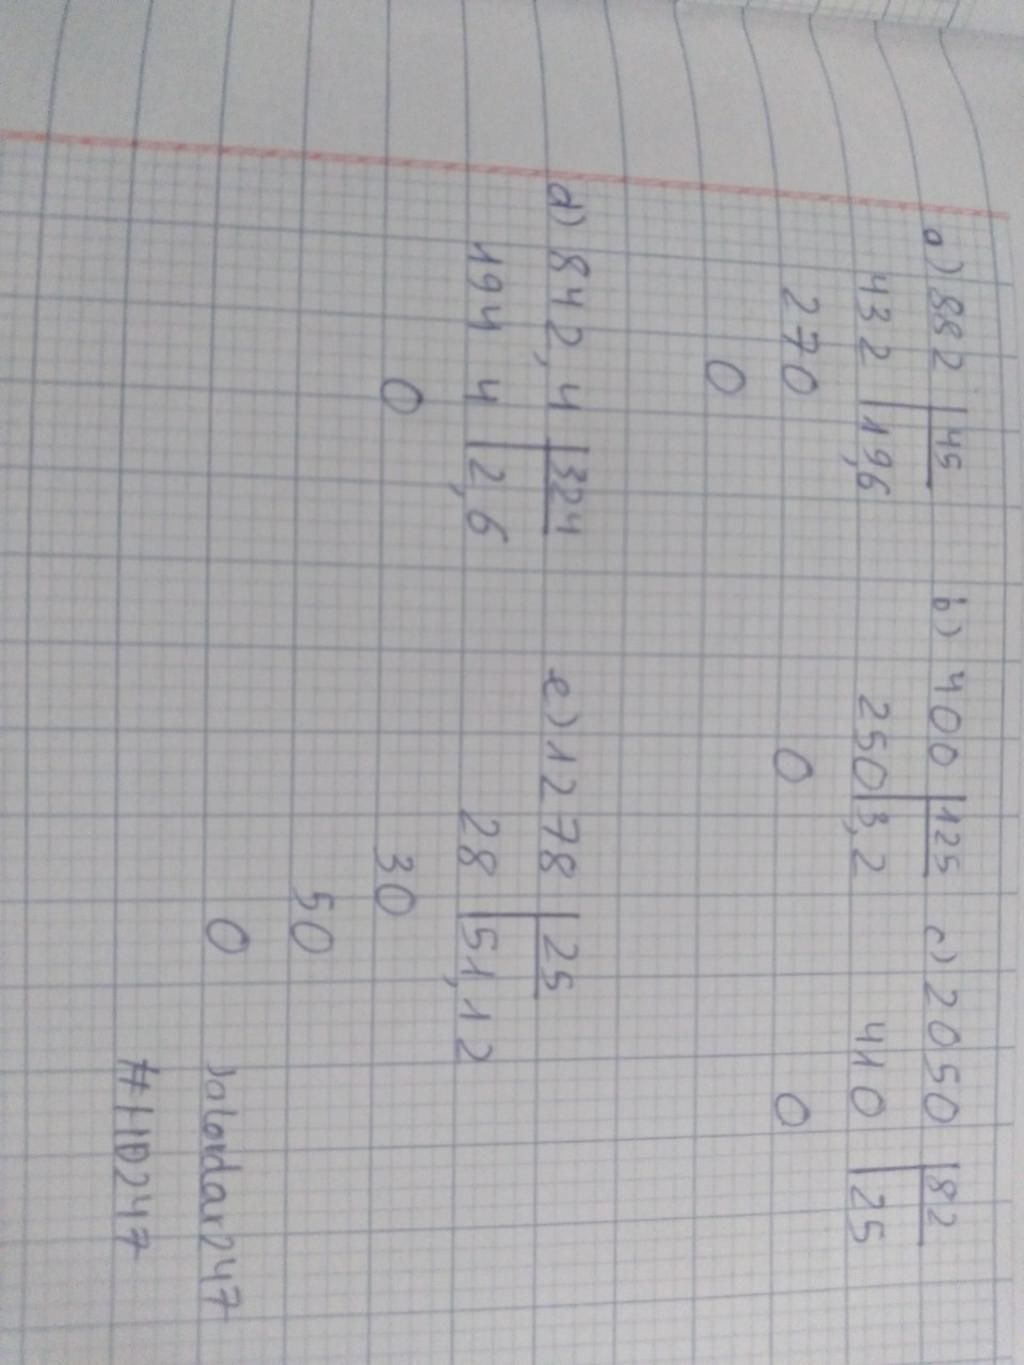 a) 882 | 45 b) 400 | 125 c) 2050 | 82
432 | 19,6 250 | 3,2 410 | 25
270 0 0
0
d) 842,4 | 324 e) 1278 | 25
194 4 | 2,6 28 | 51,12
0 30
50
0